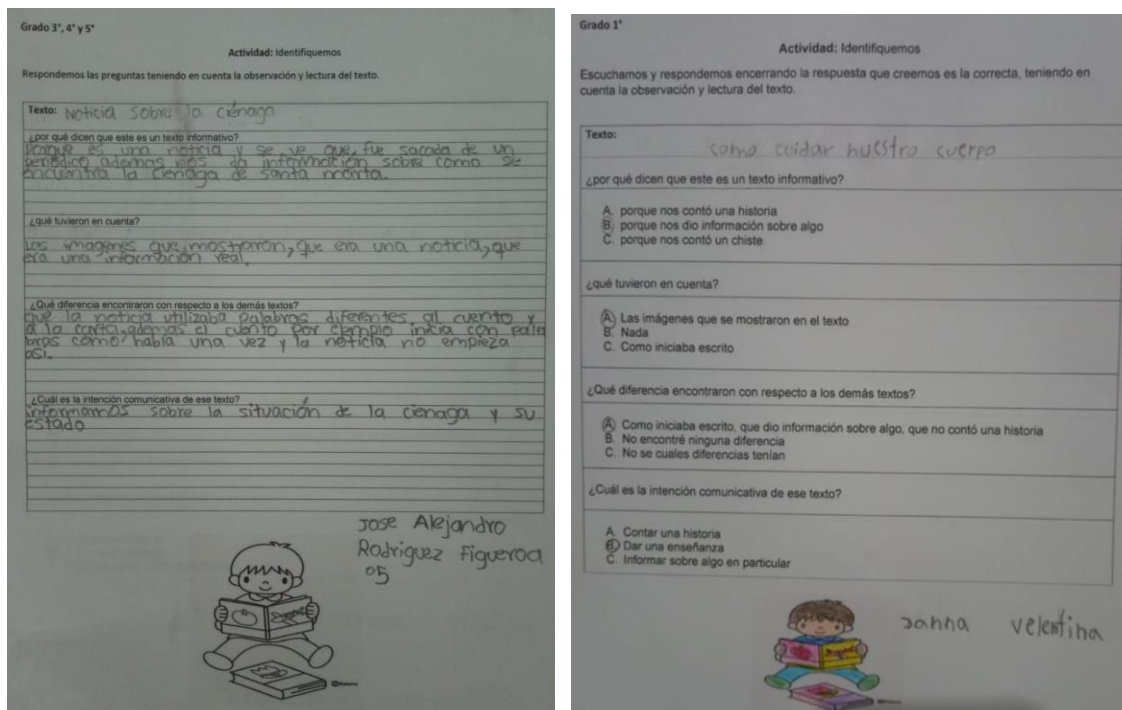 Grado 3°, 4° y 5°
Actividad: Identifiquemos
Respondemos las preguntas teniendo en cuenta la observación y lectura del texto.
Texto: Noticia sobre la ciénaga
¿por qué dicen que este es un texto informativo?
Porque es una noticia y se ve que, fue sacada de un
periódico ademas nos da información sobre como se
encuentra la Cienaga de santa marta.
¿qué tuvieron en cuenta?
Las imagenes que mostraron, que era una noticia, que
era una información real.
¿Qué diferencia encontraron con respecto a los demás textos?
Que la noticia utilizaba palabras diferentes al cuento y
a la carta, ademas el cuento por ejemplo inicia con pala
bras como había una vez y la noticia no empieza
asi.
¿Cuál es la intención comunicativa de ese texto?
informarnos sobre la situación de la cienaga y su
Estado
Jose Alejandro
Rodriguez Figueroa
05
Grado 1°
Actividad: Identifiquemos
Escuchamos y respondemos encerrando la respuesta que creemos es la correcta, teniendo en
cuenta la observación y lectura del texto.
Texto:
como cuidar nuestro cuerpo
¿por qué dicen que este es un texto informativo?
A. porque nos contó una historia
B. porque nos dio información sobre algo
C. porque nos contó un chiste
¿qué tuvieron en cuenta?
A. Las imágenes que se mostraron en el texto
B. Nada
C. Como iniciaba escrito
¿Qué diferencia encontraron con respecto a los demás textos?
A. Como iniciaba escrito, que dio información sobre algo, que no contó una historia
B. No encontré ninguna diferencia
C. No se cuales diferencias tenían
¿Cuál es la intención comunicativa de ese texto?
A. Contar una historia
B. Dar una enseñanza
C. Informar sobre algo en particular
Janna velentina